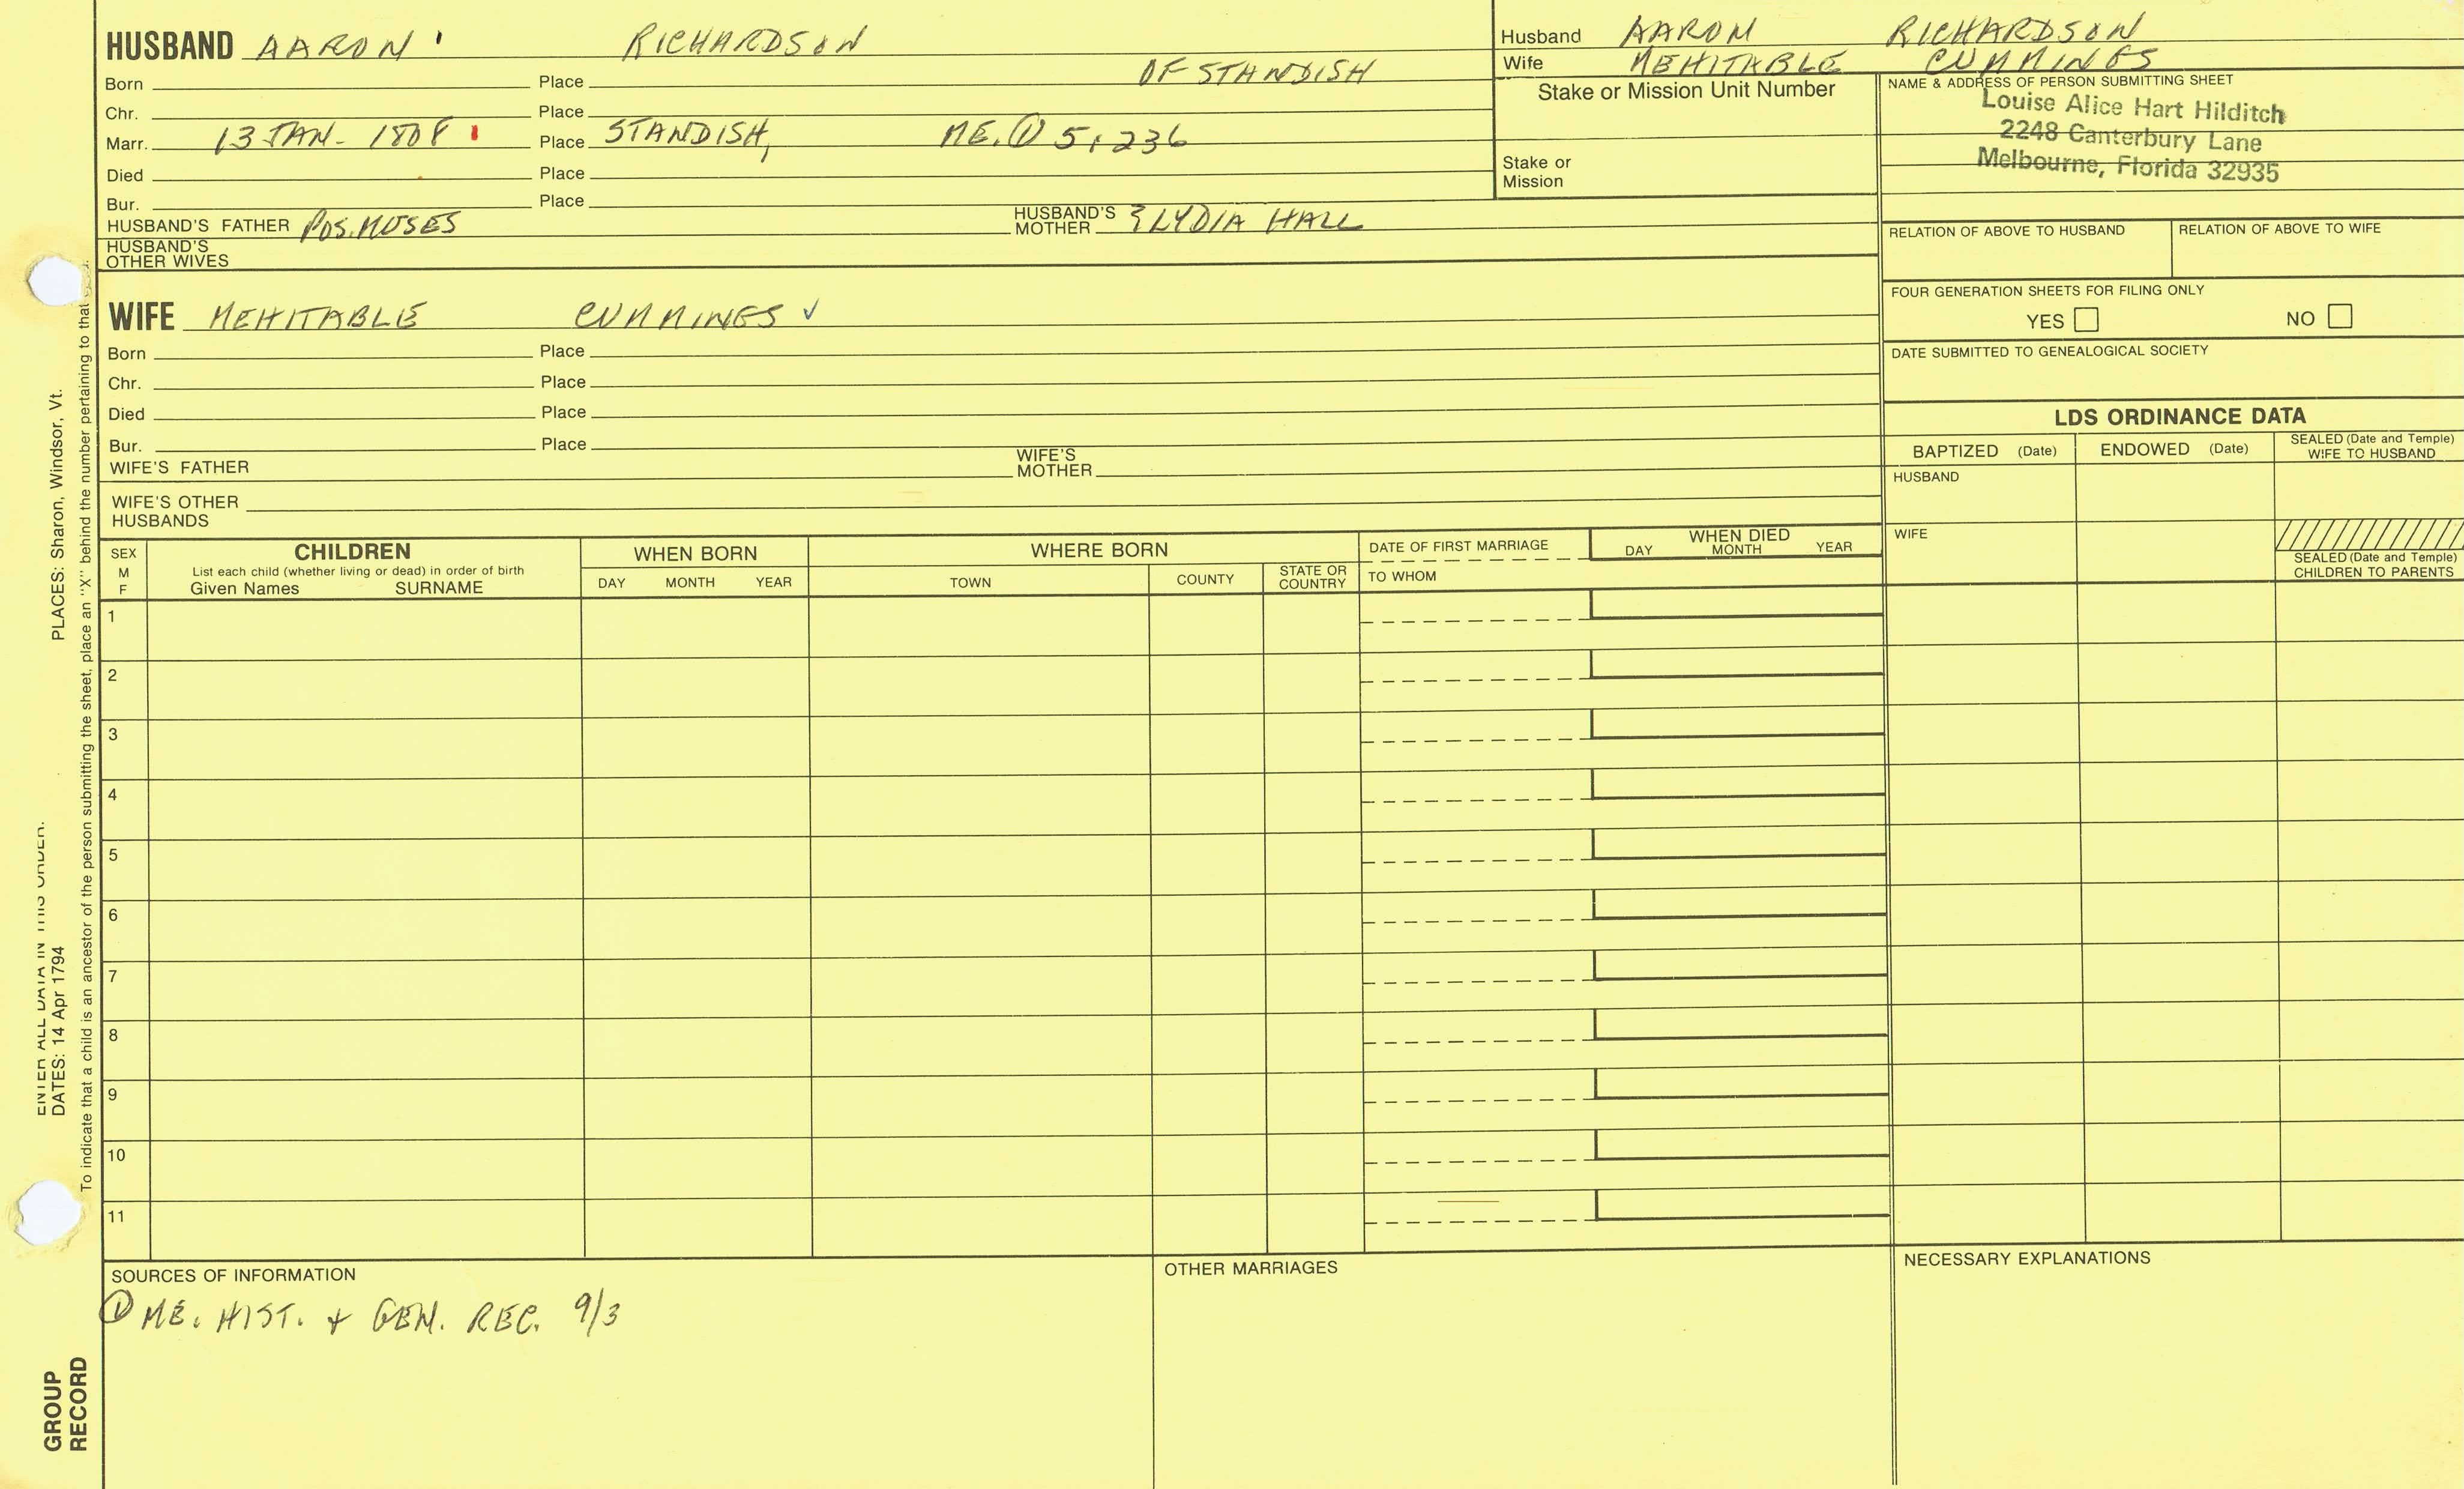 HUSBAND AARON RICHARDSON
OF STANDISH
Born Place
Chr. Place
Marr. 13 JAN. 1808 Place STANDISH, ME. ① 5:236
Died Place
Bur. Place
HUSBAND'S FATHER POS. MOSES HUSBAND'S MOTHER & LYDIA HALL
HUSBAND'S
OTHER WIVES
WIFE MEHITABLE CUMMINGS ✓
Born Place
Chr. Place
Died Place
Bur. Place
WIFE'S FATHER WIFE'S MOTHER
WIFE'S OTHER
HUSBANDS
Husband AARON RICHARDSON
Wife MEHITABLE CUMMINGS
Stake or Mission Unit Number
Stake or
Mission
NAME & ADDRESS OF PERSON SUBMITTING SHEET
Louise Alice Hart Hilditch
2248 Canterbury Lane
Melbourne, Florida 32935
RELATION OF ABOVE TO HUSBAND RELATION OF ABOVE TO WIFE
FOUR GENERATION SHEETS FOR FILING ONLY
YES NO
DATE SUBMITTED TO GENEALOGICAL SOCIETY
LDS ORDINANCE DATA
BAPTIZED (Date) ENDOWED (Date) SEALED (Date and Temple) WIFE TO HUSBAND
HUSBAND
WIFE
SEALED (Date and Temple)
CHILDREN TO PARENTS
SEX
M
F
CHILDREN
List each child (whether living or dead) in order of birth
Given Names SURNAME
WHEN BORN
DAY MONTH YEAR
WHERE BORN
TOWN COUNTY STATE OR COUNTRY
DATE OF FIRST MARRIAGE
TO WHOM
WHEN DIED
DAY MONTH YEAR
1
2
3
4
5
6
7
8
9
10
11
SOURCES OF INFORMATION
① ME. HIST. + GEN. REC. 9/3
OTHER MARRIAGES
NECESSARY EXPLANATIONS
ENTER ALL DATA IN THIS ORDER:
DATES: 14 Apr 1794 PLACES: Sharon, Windsor, Vt.
To indicate that a child is an ancestor of the person submitting the sheet, place an "X" behind the number pertaining to that
GROUP
RECORD